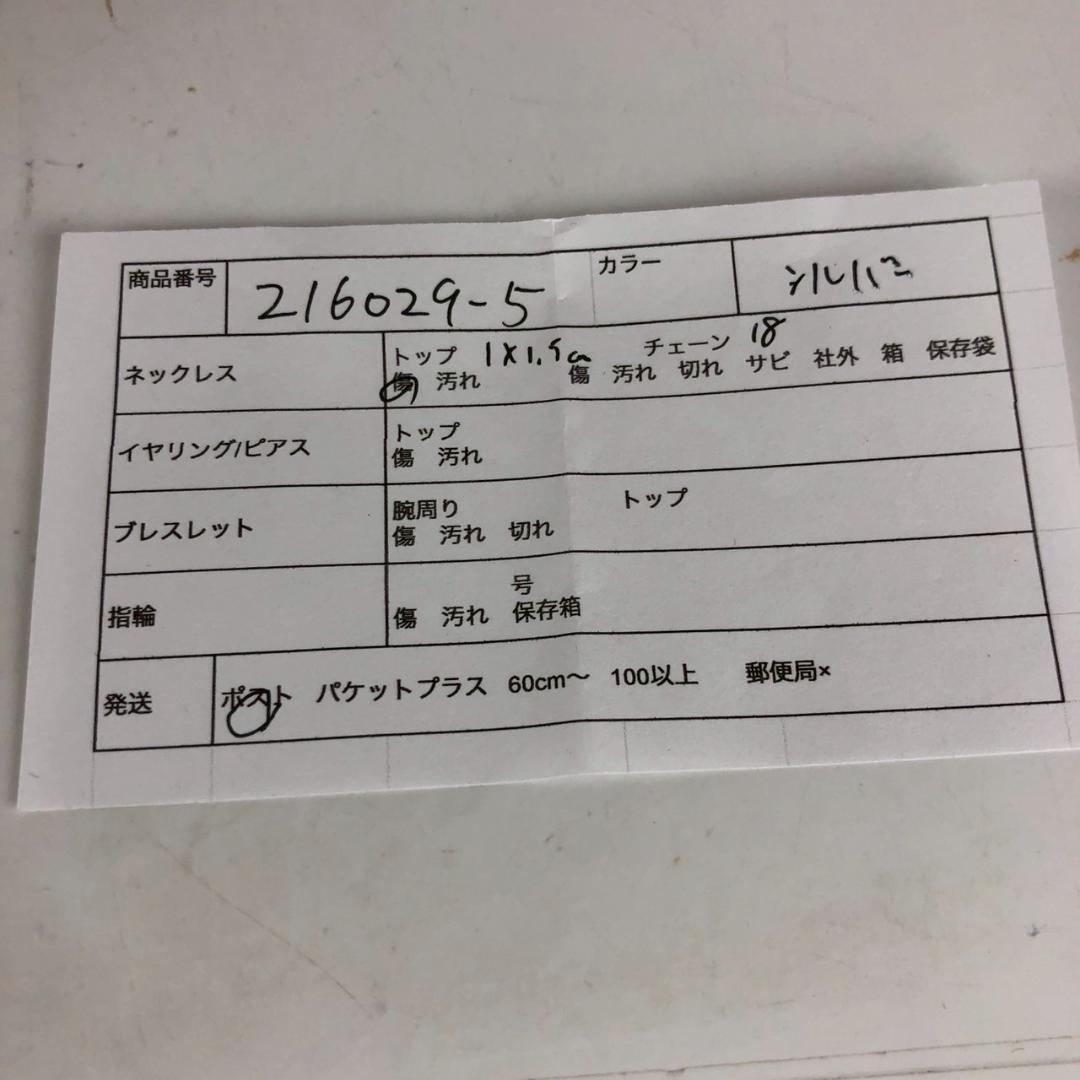 商品番号 216029-5 カラー シルバー
ネックレス トップ 1×1.5cm チェーン 18
傷 汚れ 傷 汚れ 切れ サビ 社外 箱 保存袋
イヤリング/ピアス トップ
傷 汚れ
ブレスレット 腕周り トップ
傷 汚れ 切れ
指輪 号
傷 汚れ 保存箱
発送 ポスト パケットプラス 60cm〜 100以上 郵便局×